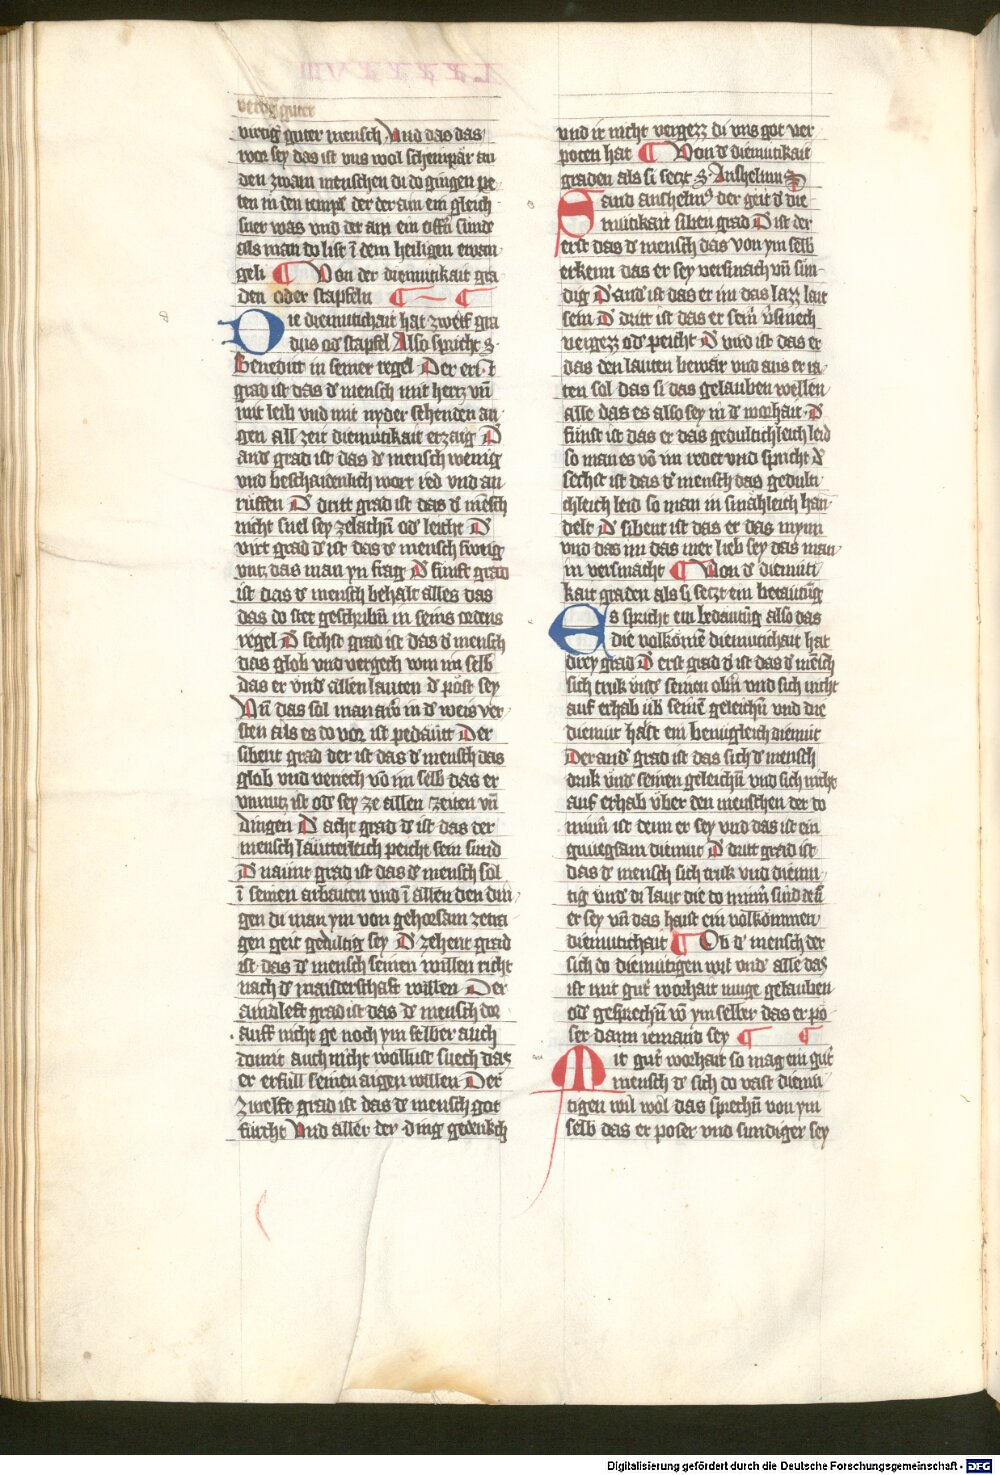 wirdig guter mensch Und das das
wor sey das ist uns wol schempär an
den zwain menschen di do gingen pe
ten in den tempel der der ain ein gleich
sner was und der ain ein offn̄ sünder
als man do list ī dem heiligen ewan
geli ¶ Von der diemutikait gra
den oder stapfeln ¶ ¶
Die diemutichait hat zwelf gra
dus od̓ stapfel Also spricht s.
Benedict in seiner regel Der erst
grad ist das d̓ mensch mit hercz vn̄
mit leib und mit nyder sehenden au
gen all zeit diemütikait erzaig D̓
and̓ grad ist das d̓ mensch wenig
und beschaidenlich wort red und an
rüffen D̓ dritt grad ist das d̓ mēsch
nicht snel sey zelachn̄ od̓ leicht D̓
virt grad d̓ ist das d̓ mensch sweig
untz das man yn frag D̓ fünft grad
ist das d̓ mensch behalt alles das
das do stet geschribn̄ in seins ordens
regel D̓ sechst grad ist das d̓ mensch
das glob und vergech von im selb
das er und̓ allen lauten d̓ pöst sey
Vn̄ das sol man aw in d̓ weis ver
sten als es do vor ist pedäutt Der
sibent grad der ist das d̓ mensch das
glob und veriech vō im selb das er
unnutz ist od̓ sey ze allen zeiten vn̄
dingen D̓ acht grad d̓ ist das der
mensch läutterleich peicht sein sünd
D̓ naünt grad ist das d̓ mensch sol
ī seinen arbaiten und ī allen den din
gen di man ym von gehorsam zetra
gen geit gedultig sey D̓ zehent grad
ist das d̓ mensch seinen willen richt
nach d̓ maisterschaft willen Der
aindleft grad ist das d̓ mensch dor
auff nicht ge noch ym selber auch
domit auch nicht wollust suech das
er erfüll seinen aigen willen Der
zwelfte grad ist das d̓ mensch got
fürcht Und aller der ding gedenkch
und ir nicht vergezz di uns got ver
poten hat ¶ Von d̓ diemutikait
graden als si seczt S. Anshelmus
Sand anshelm⁹ der geit d̓ die
mutikait siben grad D̓ ist der
erst das d̓ mensch das von ym selb
erkenn das er sey versmach vn̄ sün
dig D̓ and̓ ist das er im das lazz lait
sein D̓ dritt ist das er sein̄
vergezz od̓ peicht D̓ vird ist das er
das den lauten bewär und ans er ra
ten sol das si das gelauben wellen
alle das es also sey in d̓ worhait D̓
fünft ist das er das gedultichleich leid
so man es vō im redet und spricht D̓
sechst ist das d̓ mensch das gedulti
chleich leid so man in smähleich han
delt D̓ sibent ist das er das mynn
und das im das mer lieb sey das man
in versmächt ¶ Von d̓ diemuti
kait graden als si seczt ein bedäutūg
Es spricht ein bedäutūg also das
die volkōmē diemutichait hat
drey grad D̓ erst grad d̓ ist das d̓ mēsch
sich truk und̓ seinen obrn̄ und sich nicht
auf erhab üb̓ seinē geleichn̄ und die
diemut haist ein benügleich diemüt
Der and̓ grad ist das sich d̓ mensch
druk und̓ seinen geleichn̄ und sich nicht
auf erhab über den menschen der do
minn̄ ist denn er sey und das ist ein
genuegsam diemut D̓ dritt grad ist
das d̓ mensch sich druk und diemu
tig und̓ di laut die do minn̄ sind denn
er sey vn̄ das haist ein volkömmen
diemutichait ¶ Ob d̓ mensch der
sich do diemütigen wil und̓ alle das
ist mit gut̓ worhait müge gelauben
od̓ gesprechn̄ vō ym selber das er pö
ser dann iemand sey ¶ ¶
Mit gut̓ worhait so mag ein gut̓
mensch d̓ sich do vast diemu
tigen wil wol das sprechn̄ von ym
selb das er pöser und sundiger sey
Digitalisierung gefördert durch die Deutsche Forschungsgemeinschaft - DFG